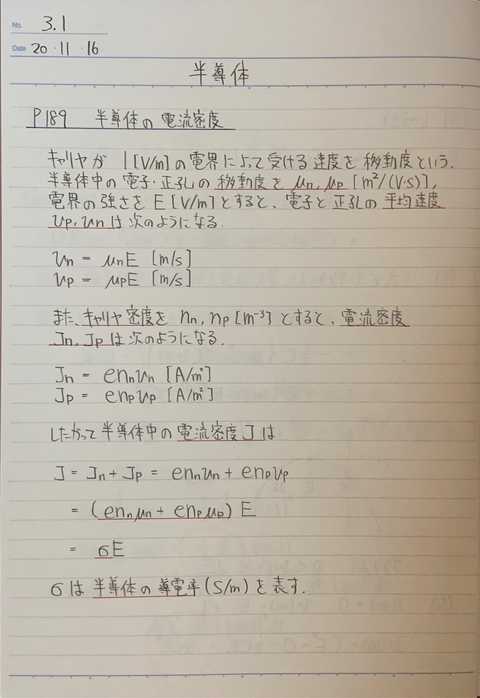 No. 3.1
Date 20・11・16
半導体
P189 半導体の電流密度
キャリヤが 1[V/m]の電界によって受ける速度を移動度という.
半導体中の電子・正孔の移動度を μn, μp [m²/(V・s)],
電界の強さを E[V/m]とすると、電子と正孔の平均速度
υp, υn は次のようになる.
υn = μnE [m/s]
υp = μpE [m/s]
また、キャリヤ密度を nn, np [m⁻³] とすると、電流密度
Jn, Jp は次のようになる.
Jn = ennυn [A/m²]
Jp = enpυp [A/m²]
したがって半導体中の電流密度 J は
J = Jn + Jp = ennυn + enpυp
= (ennμn + enpμp) E
= σE
σは半導体の導電率(S/m)を表す.